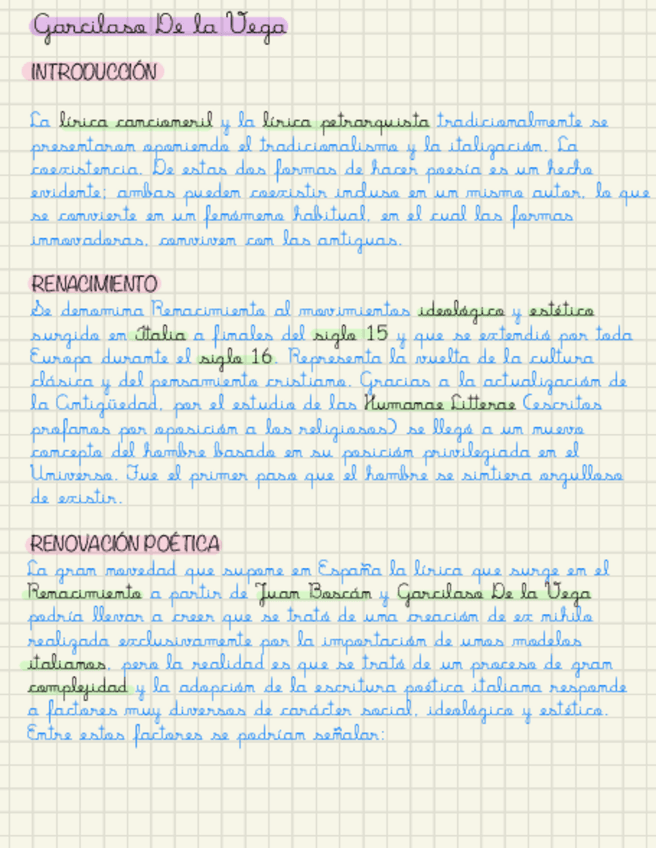 Garcilaso De la Vega
INTRODUCCIÓN
La lírica cancioneril y la lírica petrarquista tradicionalmente se
presentaron oponiendo el tradicionalismo y la italización. La
coexistencia. De estas dos formas de hacer poesía es un hecho
evidente; ambas pueden coexistir incluso en un mismo autor, lo que
se convierte en un fenómeno habitual, en el cual las formas
innovadoras, conviven con las antiguas.
RENACIMIENTO
Se denomina Renacimiento al movimientos ideológico y estético
surgido en Italia a finales del siglo 15 y que se extendió por toda
Europa durante el siglo 16. Representa la vuelta de la cultura
clásica y del pensamiento cristiano. Gracias a la actualización de
la Antigüedad, por el estudio de las Humanae Litterae (escritos
profanos por oposición a los religiosos) se llegó a un nuevo
concepto del hombre basado en su posición privilegiada en el
Universo. Fue el primer paso que el hombre se sintiera orgulloso
de existir.
RENOVACIÓN POÉTICA
La gran novedad que supone en España la lírica que surge en el
Renacimiento a partir de Juan Boscán y Garcilaso De la Vega
podría llevar a creer que se trató de una creación de ex nihilo
realizada exclusivamente por la importación de unos modelos
italianos, pero la realidad es que se trató de un proceso de gran
complejidad y la adopción de la escritura poética italiana responde
a factores muy diversos de carácter social, ideológico y estético.
Entre estos factores se podrían señalar: